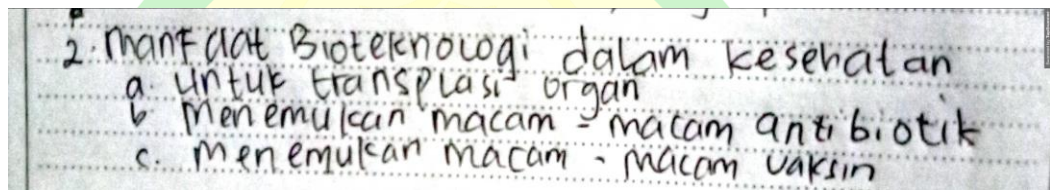 2. Manfaat Bioteknologi dalam kesehatan
a. Untuk transplasi organ
b Menemukan macam - macam antibiotik
c. Menemukan macam - macam vaksin